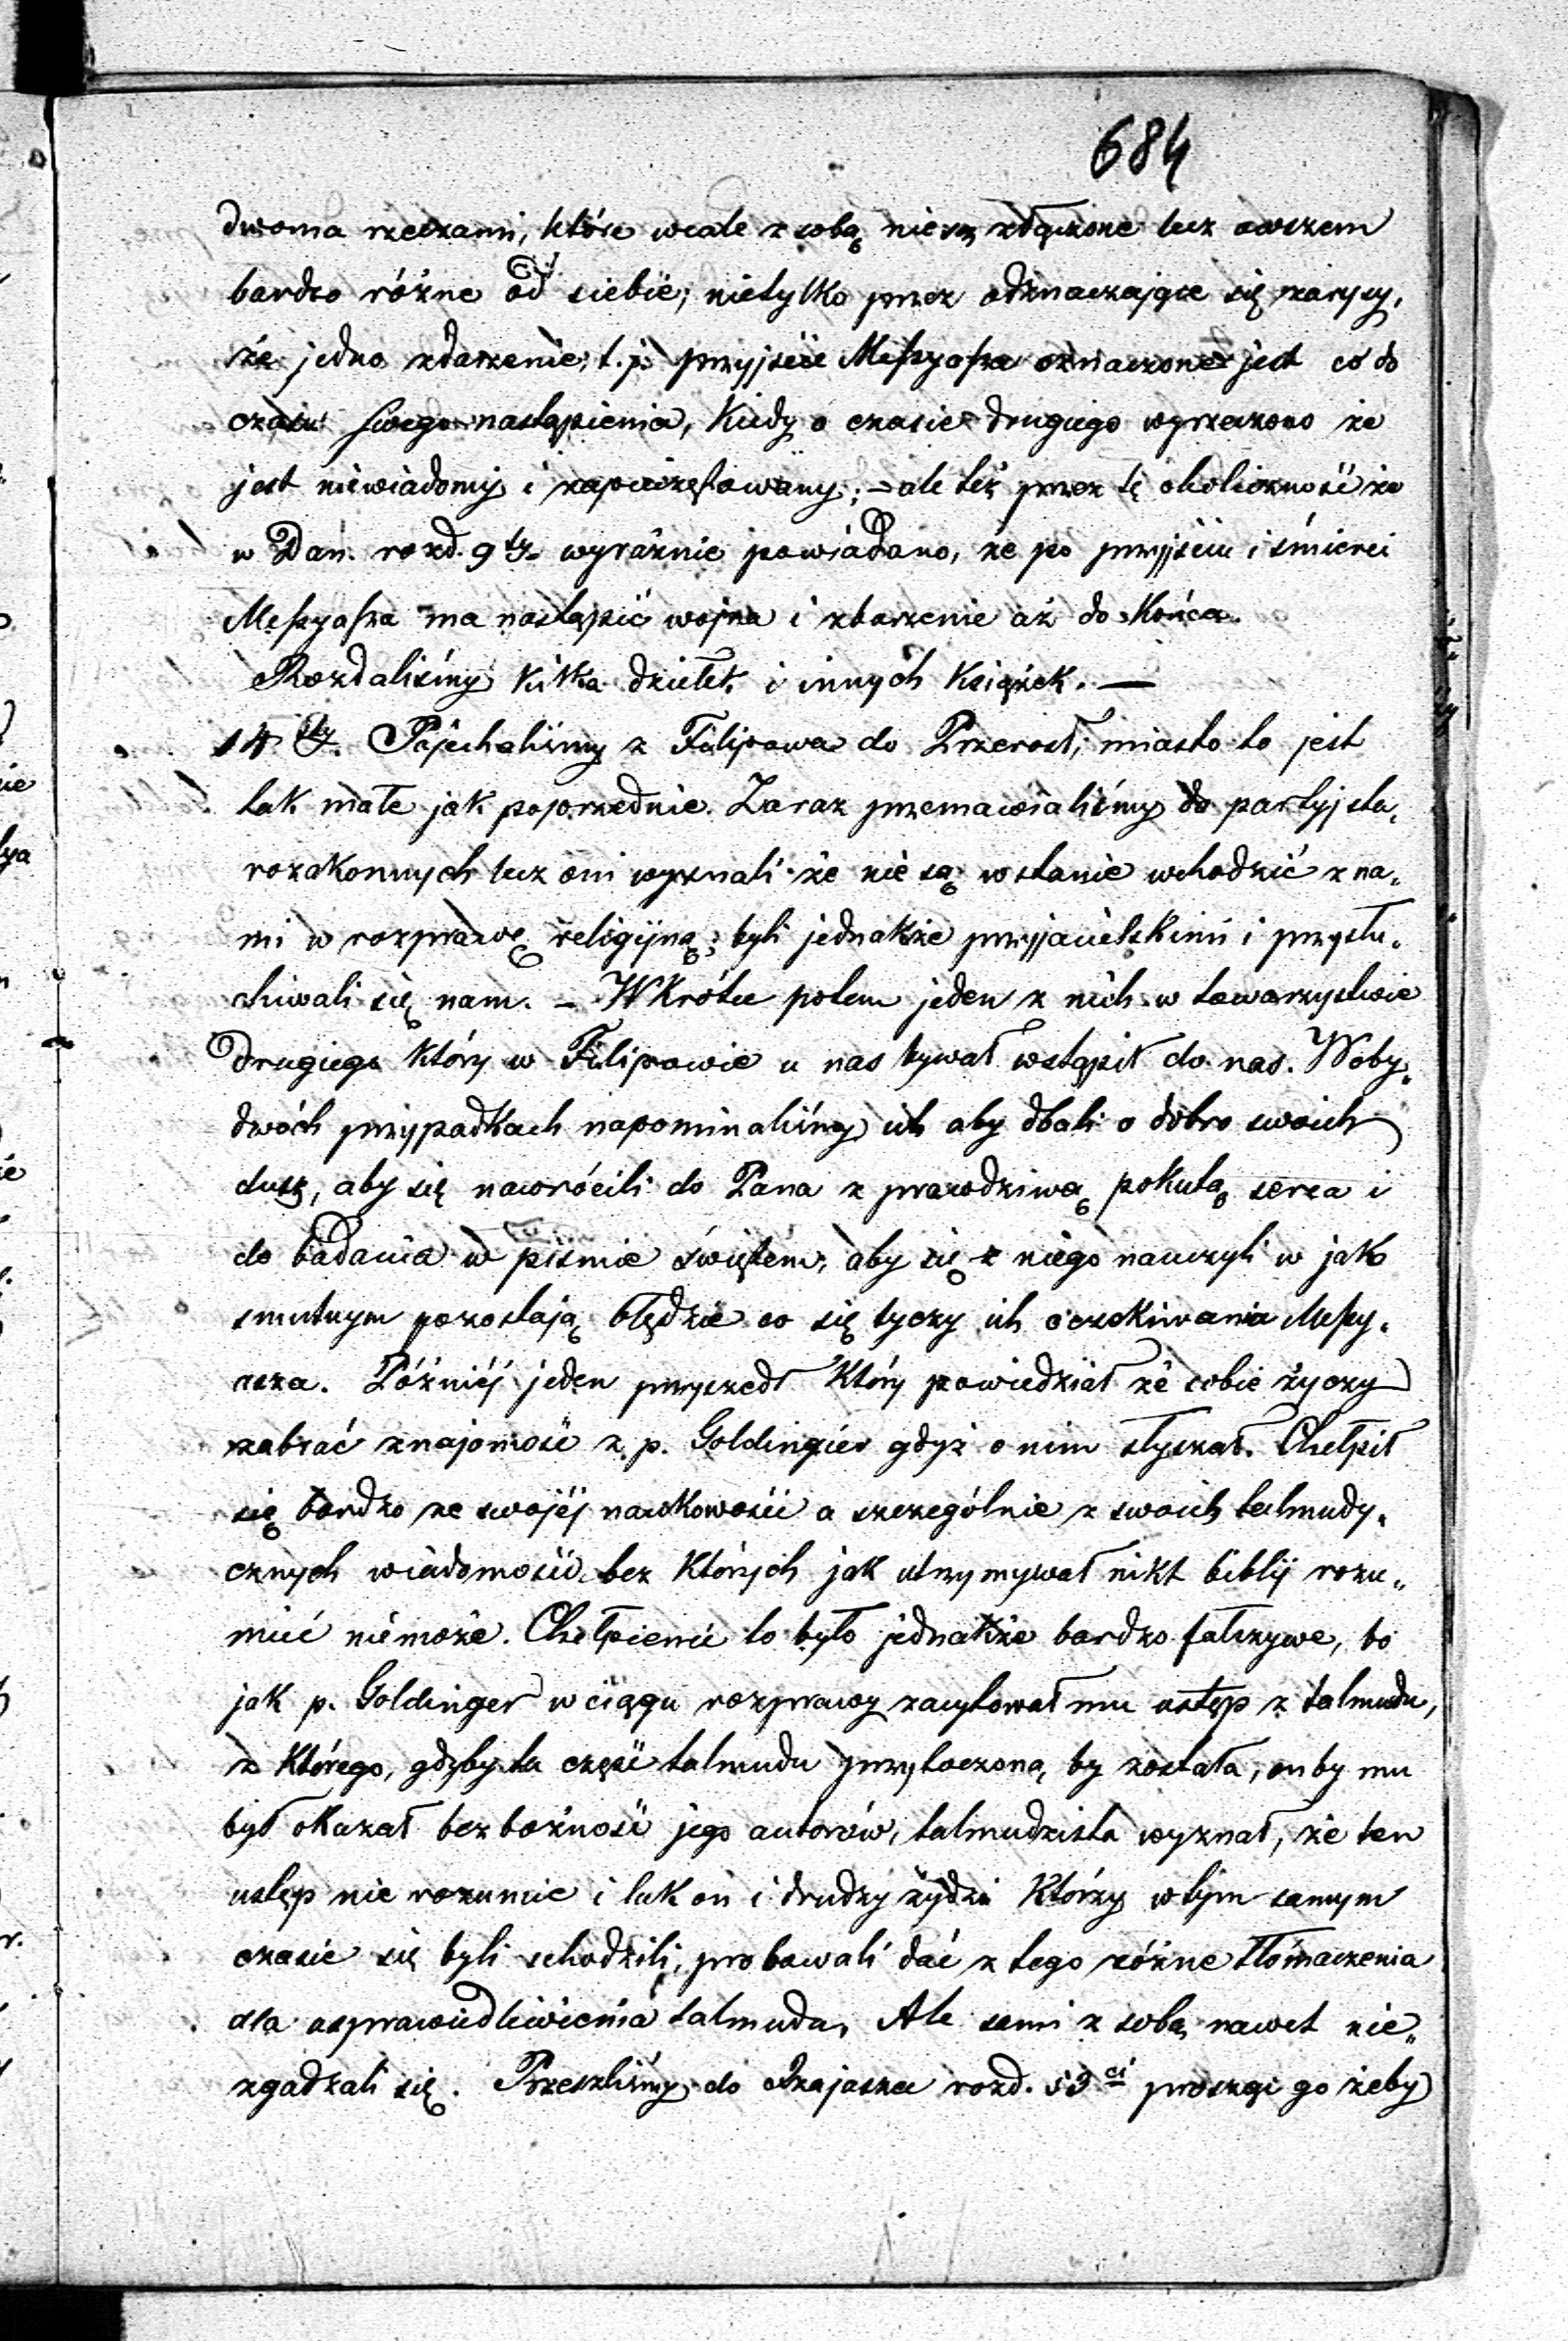 684
dwoma rzeczami, które wcale z sobą nie są złączone lecz owszem
bardzo różne od siebie; nietylko przez odznaczające się zarysy,
że jedno zdarzenie, t. j. przyjście Messyasza oznaczone jest co do
czasu swego nastąpienia, kiedy o czasie drugiego wyrzeczono że
jest niewiadomy i zapieczętowany; – ale też przez tę okoliczność że
w Dan. rozd. 9 ty. wyraźnie powiadano, że po przyjściu i śmierci
Messyasza ma nastąpić wojna i zburzenie aż do końca.
Rozdaliśmy kilka dziełek i innych książek. —
14 ty. Pojechaliśmy z Filipowa do Przerośl, miasto to jest
tak małe jak poprzednie. Zaraz przemawialiśmy do partyj sta„
rozakonnych lecz oni wyznali że nie są w stanie wchodzić z na„
mi w rozprawę religijną; byli jednakże przyjacielskimi i przysłu„
chiwali się nam. – W krótce potem jeden z nich w towarzystwie
drugiego który w Filipowie u nas bywał wstąpił do nas. W oby„
dwóch przypadkach napominaliśmy ich aby dbali o dobro swoich
dusz, aby się nawrócili do Pana z prawdziwą pokutą serca i
do badania w piśmie świętem, aby się z niego nauczyli w jak
smutnym pozostają błędzie co się tyczy ich oczekiwania Messy„
asza. Później jeden przyszedł który powiedział że sobie życzy
zabrać znajomość z p. Goldingier gdyż o nim słyszał. Chełpił
się bardzo ze swojéj naukowości a szczególnie z swoich talmudy„
cznych wiadomości bez których jak utrzymywał nikt biblij rozu„
mieć niemoże. Chełpienie to było jednakże bardzo fałszywe, bo
jak p. Goldinger w ciągu rozprawy zacytował mu ustęp z talmudu,
z którego, gdyby ta część talmudu przytoczoną by została, on by mu
był okazał bezbożność jego autorów, talmudzista wyznał, że ten
ustęp nie rozumie i tak on i drudzy żydzi którzy w tym samym
czasie się byli schodzili, probowali dać z tego różne tłómaczenia
dla usprawiedliwienia talmudu, Ale sami z sobą nawet nie„
zgadzali się. Przeszliśmy do Izajasza rozd. 53 ci prosząc go żeby